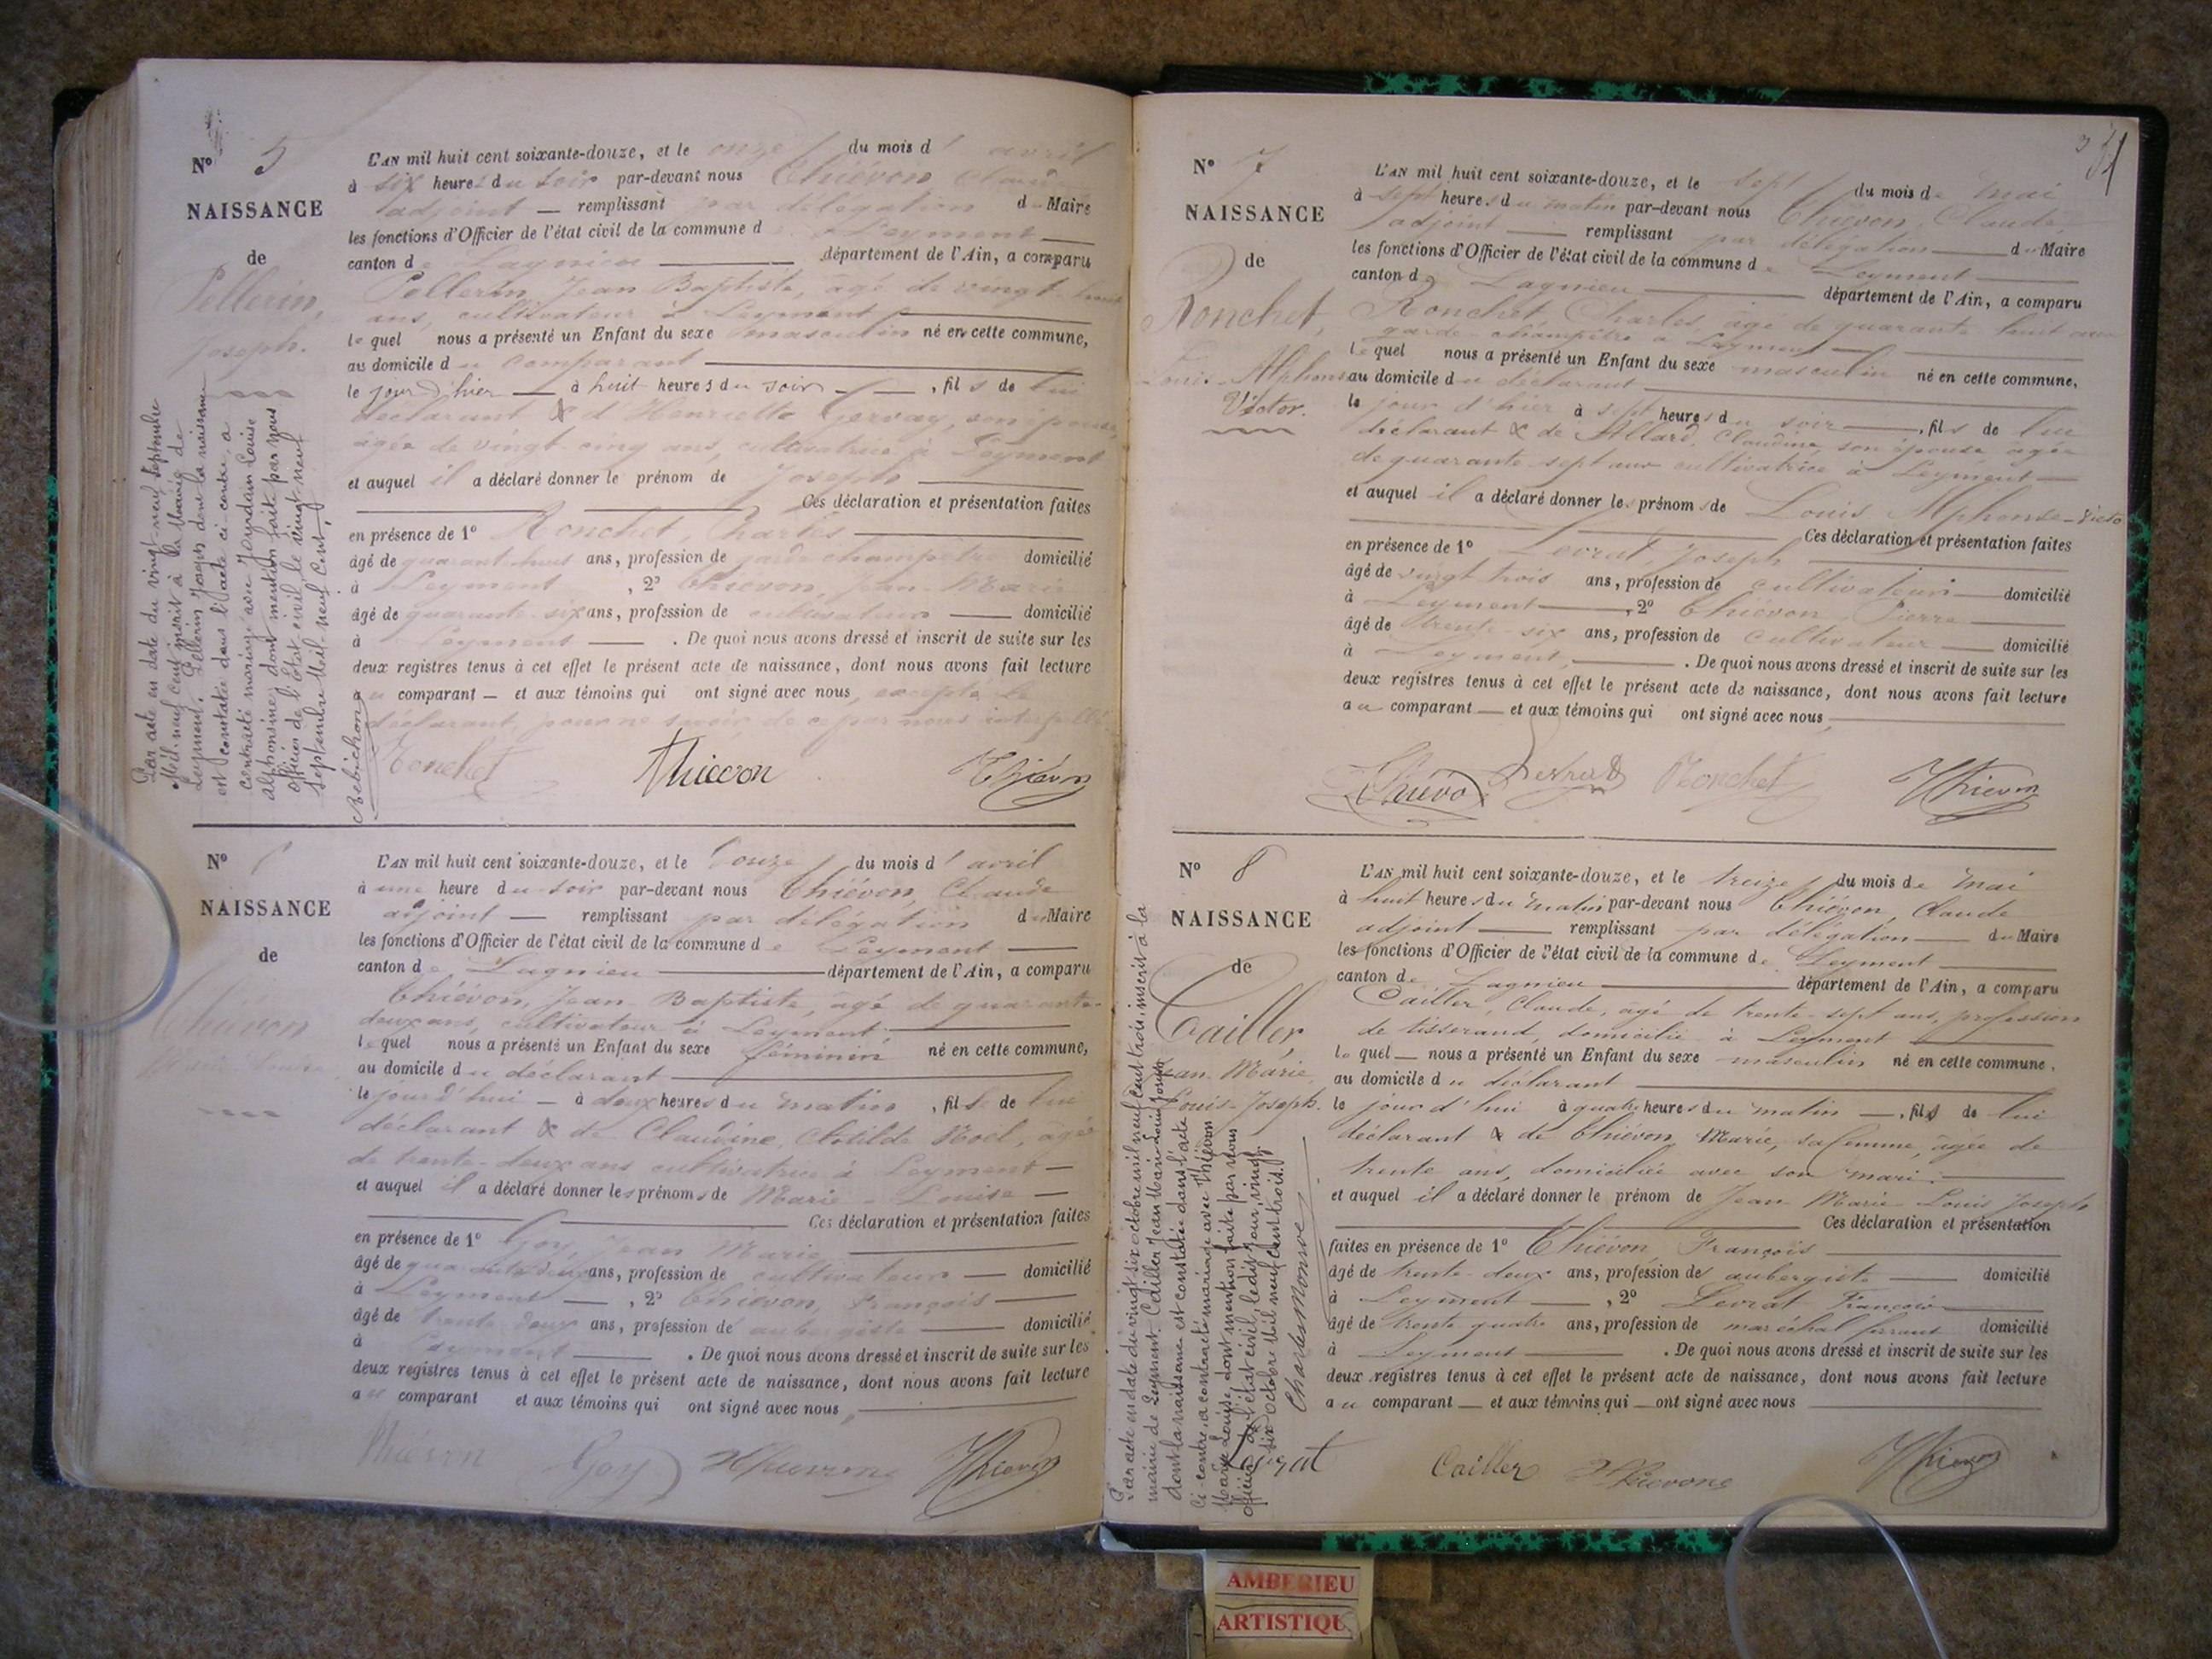 N° 5
NAISSANCE
de
Pellerin,
Joseph.
Par acte en date du vingt-neuf septembre
Mil-neuf cent inscrit à la Mairie de
Leyment. Pellerin Joseph dont la naissance
est constatée dans l'acte ci-contre, a
contracté mariage avec Jourdain Louise
alphonsine, dont mention faite par nous
officier de l'état civil, le vingt neuf
septembre Mil-neuf Cent,
L'AN mil huit cent soixante-douze, et le onze du mois d' avril
à six heures du soir par-devant nous Thiévon Claude
adjoint — remplissant par délégation du Maire
les fonctions d'Officier de l'état civil de la commune de Leyment
canton de Lagnieu département de l'Ain, a comparu
Pellerin, Jean Baptiste, âgé de vingt-huit
ans, cultivateur à Leyment
lequel nous a présenté un Enfant du sexe masculin né en cette commune,
au domicile du comparant
le jour d'hier — à huit heures du soir — , fils de lui
déclarant & d'Henriette Gervay, son épouse,
âgée de vingt-cinq ans, cultivatrice à Leyment
et auquel il a déclaré donner le prénom de Joseph
Ces déclaration et présentation faites
en présence de 1° Ronchet, Charles
âgé de quarante huit ans, profession de garde champêtre domicilié
à Leyment, 2° Thiévon, Jean-Marie
âgé de quarante-six ans, profession de cultivateur — domicilié
à Leyment — . De quoi nous avons dressé et inscrit de suite sur les
deux registres tenus à cet effet le présent acte de naissance, dont nous avons fait lecture
au comparant — et aux témoins qui ont signé avec nous, excepté le
déclarant, pour ne savoir de ce par nous interpellé
Ronchet Thiévon Thiévon
N° 6
NAISSANCE
de
Thiévon
Marie Louise
L'AN mil huit cent soixante-douze, et le douze du mois d' avril
à une heure du soir par-devant nous Thiévon, Claude
adjoint — remplissant par délégation du Maire
les fonctions d'Officier de l'état civil de la commune de Leyment
canton de Lagnieu département de l'Ain, a comparu
Thiévon, Jean Baptiste, âgé de quarante-
deux ans, cultivateur à Leyment,
lequel nous a présenté un Enfant du sexe féminin né en cette commune,
au domicile du déclarant
le jour d'hui — à deux heures du matin , fille de lui
déclarant & de Claudine, Clotilde Noël, âgée
de trente-deux ans cultivatrice à Leyment —
et auquel il a déclaré donner les prénoms de Marie-Louise —
Ces déclaration et présentation faites
en présence de 1° Goy, Jean Marie,
âgé de quarante deux ans, profession de cultivateur — domicilié
à Leyment — , 2° Thiévon, François
âgé de trente deux ans, profession de aubergiste — domicilié
à Leyment . De quoi nous avons dressé et inscrit de suite sur les
deux registres tenus à cet effet le présent acte de naissance, dont nous avons fait lecture
au comparant et aux témoins qui ont signé avec nous,
Thiévon Goy Thiévon Thiévon
N° 7
NAISSANCE
de
Ronchet,
Louis-Alphonse
Victor.
L'AN mil huit cent soixante-douze, et le sept du mois de Mai
à sept heures du matin par-devant nous Thiévon, Claude,
adjoint remplissant par délégation du Maire
les fonctions d'Officier de l'état civil de la commune de Leyment
canton de Lagnieu département de l'Ain, a comparu
Ronchet, Charles âgé de quarante huit ans
garde-champêtre à Leyment
lequel nous a présenté un Enfant du sexe masculin né en cette commune,
au domicile du déclarant
le jour d'hier à sept heures du soir , fils de lui
déclarant & de Allard, Claudine, son épouse âgée
de quarante-sept ans cultivatrice à Leyment —
et auquel il a déclaré donner les prénoms de Louis Alphonse-Victo
Ces déclaration et présentation faites
en présence de 1° Levrat, Joseph
âgé de vingt trois ans, profession de cultivateur domicilié
à Leyment , 2° Thiévon, Pierre
âgé de trente-six ans, profession de cultivateur domicilié
à Leyment, . De quoi nous avons dressé et inscrit de suite sur les
deux registres tenus à cet effet le présent acte de naissance, dont nous avons fait lecture
au comparant — et aux témoins qui ont signé avec nous,
Thiévo Levrat Ronchet Thiévon
N° 8
NAISSANCE
de
Cailler
Jean-Marie
Louis-Joseph.
Par acte en date du vingt six octobre mil neuf cent trois, inscrit à la
mairie de Leyment. Cailler Jean Marie Louis Joseph
dont la naissance est constatée dans l'acte
ci-contre, a contracté mariage avec Thiévon
Marie Louise, dont mention faite par nous
officier de l'état civil, ledit jour, vingt-
six octobre Mil neuf cent trois.
Charles Monnoz
L'AN mil huit cent soixante-douze, et le treize du mois de Mai
à huit heures du matin par-devant nous Thiévon, Claude
adjoint remplissant par délégation — du Maire
les fonctions d'Officier de l'état civil de la commune de Leyment
canton de Lagnieu département de l'Ain, a comparu
Cailler, Claude, âgé de trente-sept ans, profession
de tisserand, domicilié à Leyment
lequel — nous a présenté un Enfant du sexe masculin né en cette commune,
au domicile du déclarant
le jour d'hui à quatre heures du matin — , fils de lui
déclarant & de Thiévon, Marie, sa femme, âgée de
trente ans, domiciliée avec son mari.
et auquel il a déclaré donner le prénom de Jean Marie Louis Joseph
Ces déclaration et présentation
faites en présence de 1° Thiévon, François
âgé de trente-deux ans, profession de aubergiste domicilié
à Leyment , 2° Levrat François
âgé de trente quatre ans, profession de maréchal ferrant domicilié
à Leyment . De quoi nous avons dressé et inscrit de suite sur les
deux registres tenus à cet effet le présent acte de naissance, dont nous avons fait lecture
au comparant — et aux témoins qui — ont signé avec nous
Levrat Cailler Thievon Thiévon
AMBERIEU
ARTISTIQU